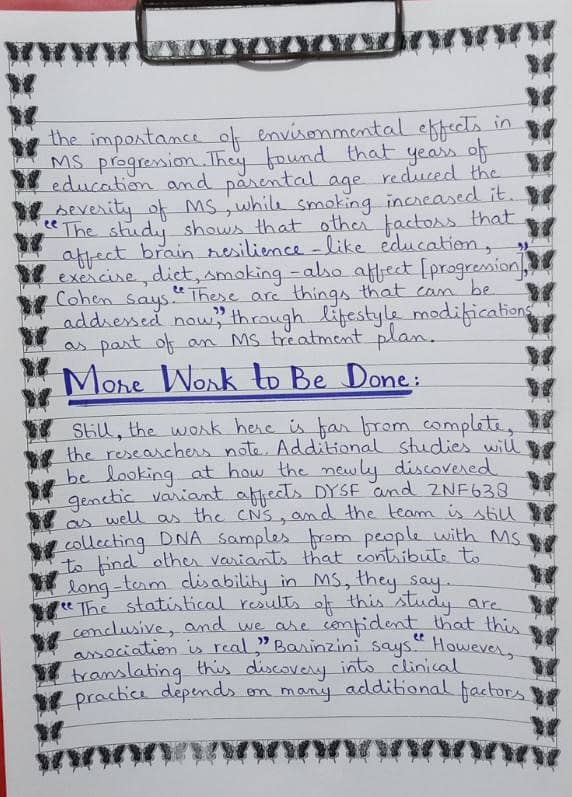 the importance of environmental effects in
MS progression. They found that years of
education and parental age reduced the
severity of MS, while smoking increased it.
"The study shows that other factors that
affect brain resilience - like education,
exercise, diet, smoking - also affect [progression],"
Cohen says. "These are things that can be
addressed now," through lifestyle modifications
as part of an MS treatment plan.
More Work to Be Done:
Still, the work here is far from complete,
the researchers note. Additional studies will
be looking at how the newly discovered
genetic variant affects DYSF and ZNF638
as well as the CNS, and the team is still
collecting DNA samples from people with MS
to find other variants that contribute to
long-term disability in MS, they say.
"The statistical results of this study are
conclusive, and we are confident that this
association is real," Barinzini says. "However,
translating this discovery into clinical
practice depends on many additional factors